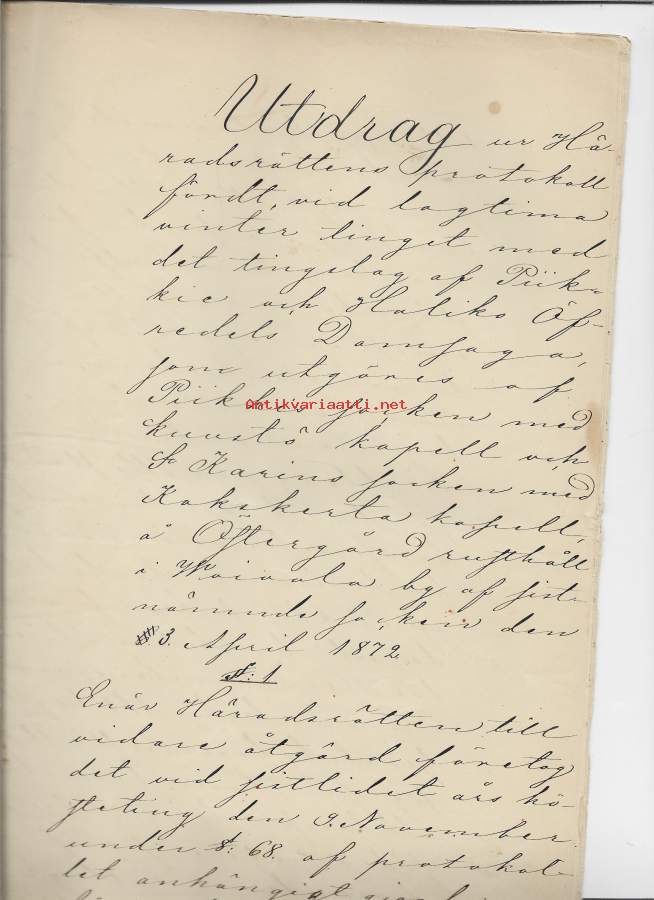 Utdrag ur Hä-
radsrättens protokoll
fördt, vid lagtima
vinter tinget med
det tingslag af Piik-
kie och Haliko Öf-
redels Domsaga,
som utgöres af
Piikkis socken med
Antikvariaatti.net
kuustö kapell och
St Karins socken med
Kakskerta kapell,
å Öftergård rusthåll
i by af sist-
nämnde socken den
3. April 1872
§: 1
Enär Häradsrätten till
vidare åtgärd företog
det vid sistlidet års hö-
steting den 9. November
under §: 68. af protokol-
let anhängigt